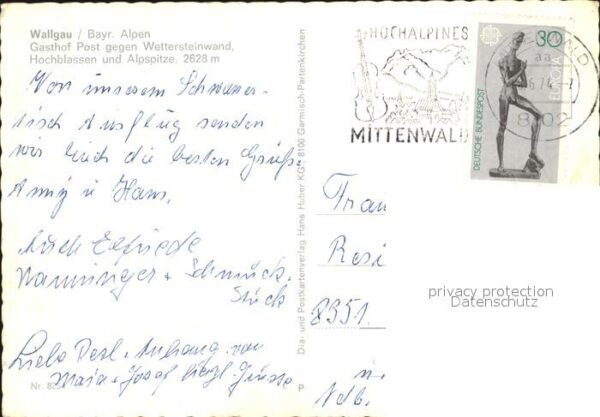 Wallgau / Bayr. Alpen
Gasthof Post gegen Wettersteinwand,
Hochblassen und Alpspitze. 2628 m
Von unserem Schwammer-
tisch Ausflug senden
wir Euch die besten Grüße
Anny u Hans,
Auch Elfriede
Wanninger + Schmuck.
Stück
Liebe Resl. Anhang von
Maria + Josef
Nr. 825
Dia- und Postkartenverlag Hans Huber KG, 8100 Garmisch-Partenkirchen
P
HOCHALPINES
MITTENWALD
8102
30
EUROPA
DEUTSCHE BUNDESPOST
Frau
Resi
8351.
Ndb.
privacy protection
Datenschutz